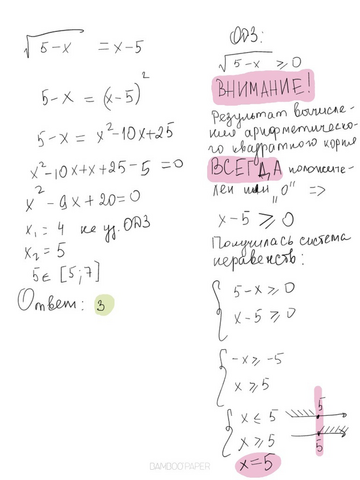 √5-x = x-5
5-x = (x-5)²
5-x = x²-10x+25
x²-10x+x+25-5=0
x²-9x+20=0
x₁=4 не уд. ОДЗ
x₂=5
5∈[5;7]
Ответ: 3
ОДЗ:
√5-x ≥0
ВНИМАНИЕ!
Результат вычисле-
ния арифметическо-
го квадратного корня
ВСЕГДА положите-
лен или „0" =>
x-5≥0
Получилась система
неравенств:
{ 5-x≥0
x-5≥0
{ -x≥-5
x≥5
{ x≤5
x≥5
5
5
x=5
BAMBOO PAPER